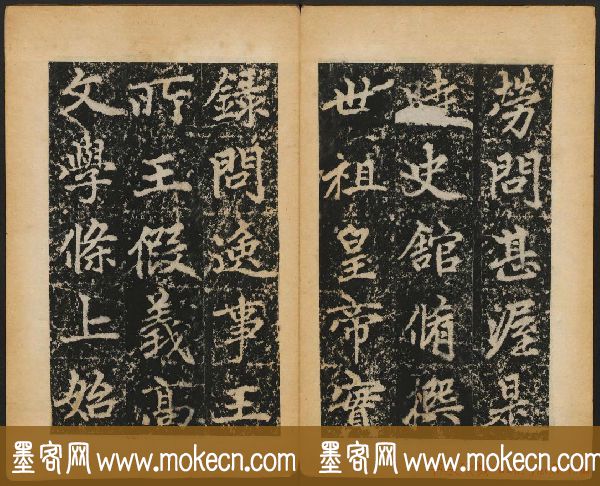 劳問甚渥是
時史舘脩撰
世祖皇帝實
録問逸事王
所王假義髙
文學條上始
墨客网 www.mokecn.com
墨客网 www.mokecn.com